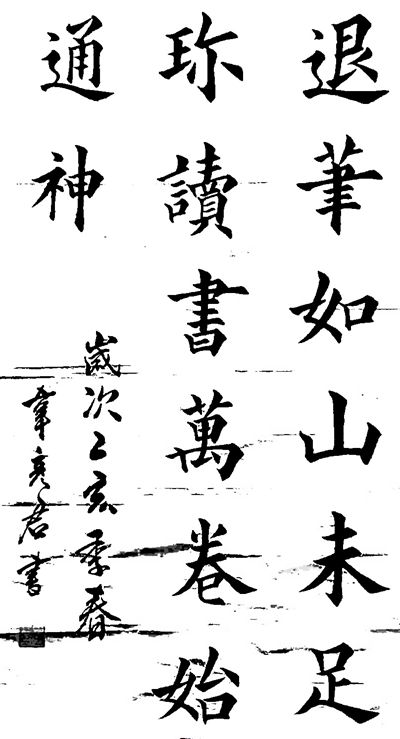 退筆如山未足
珎讀書萬卷始
通神
歲次乙亥季春
韋彦君書